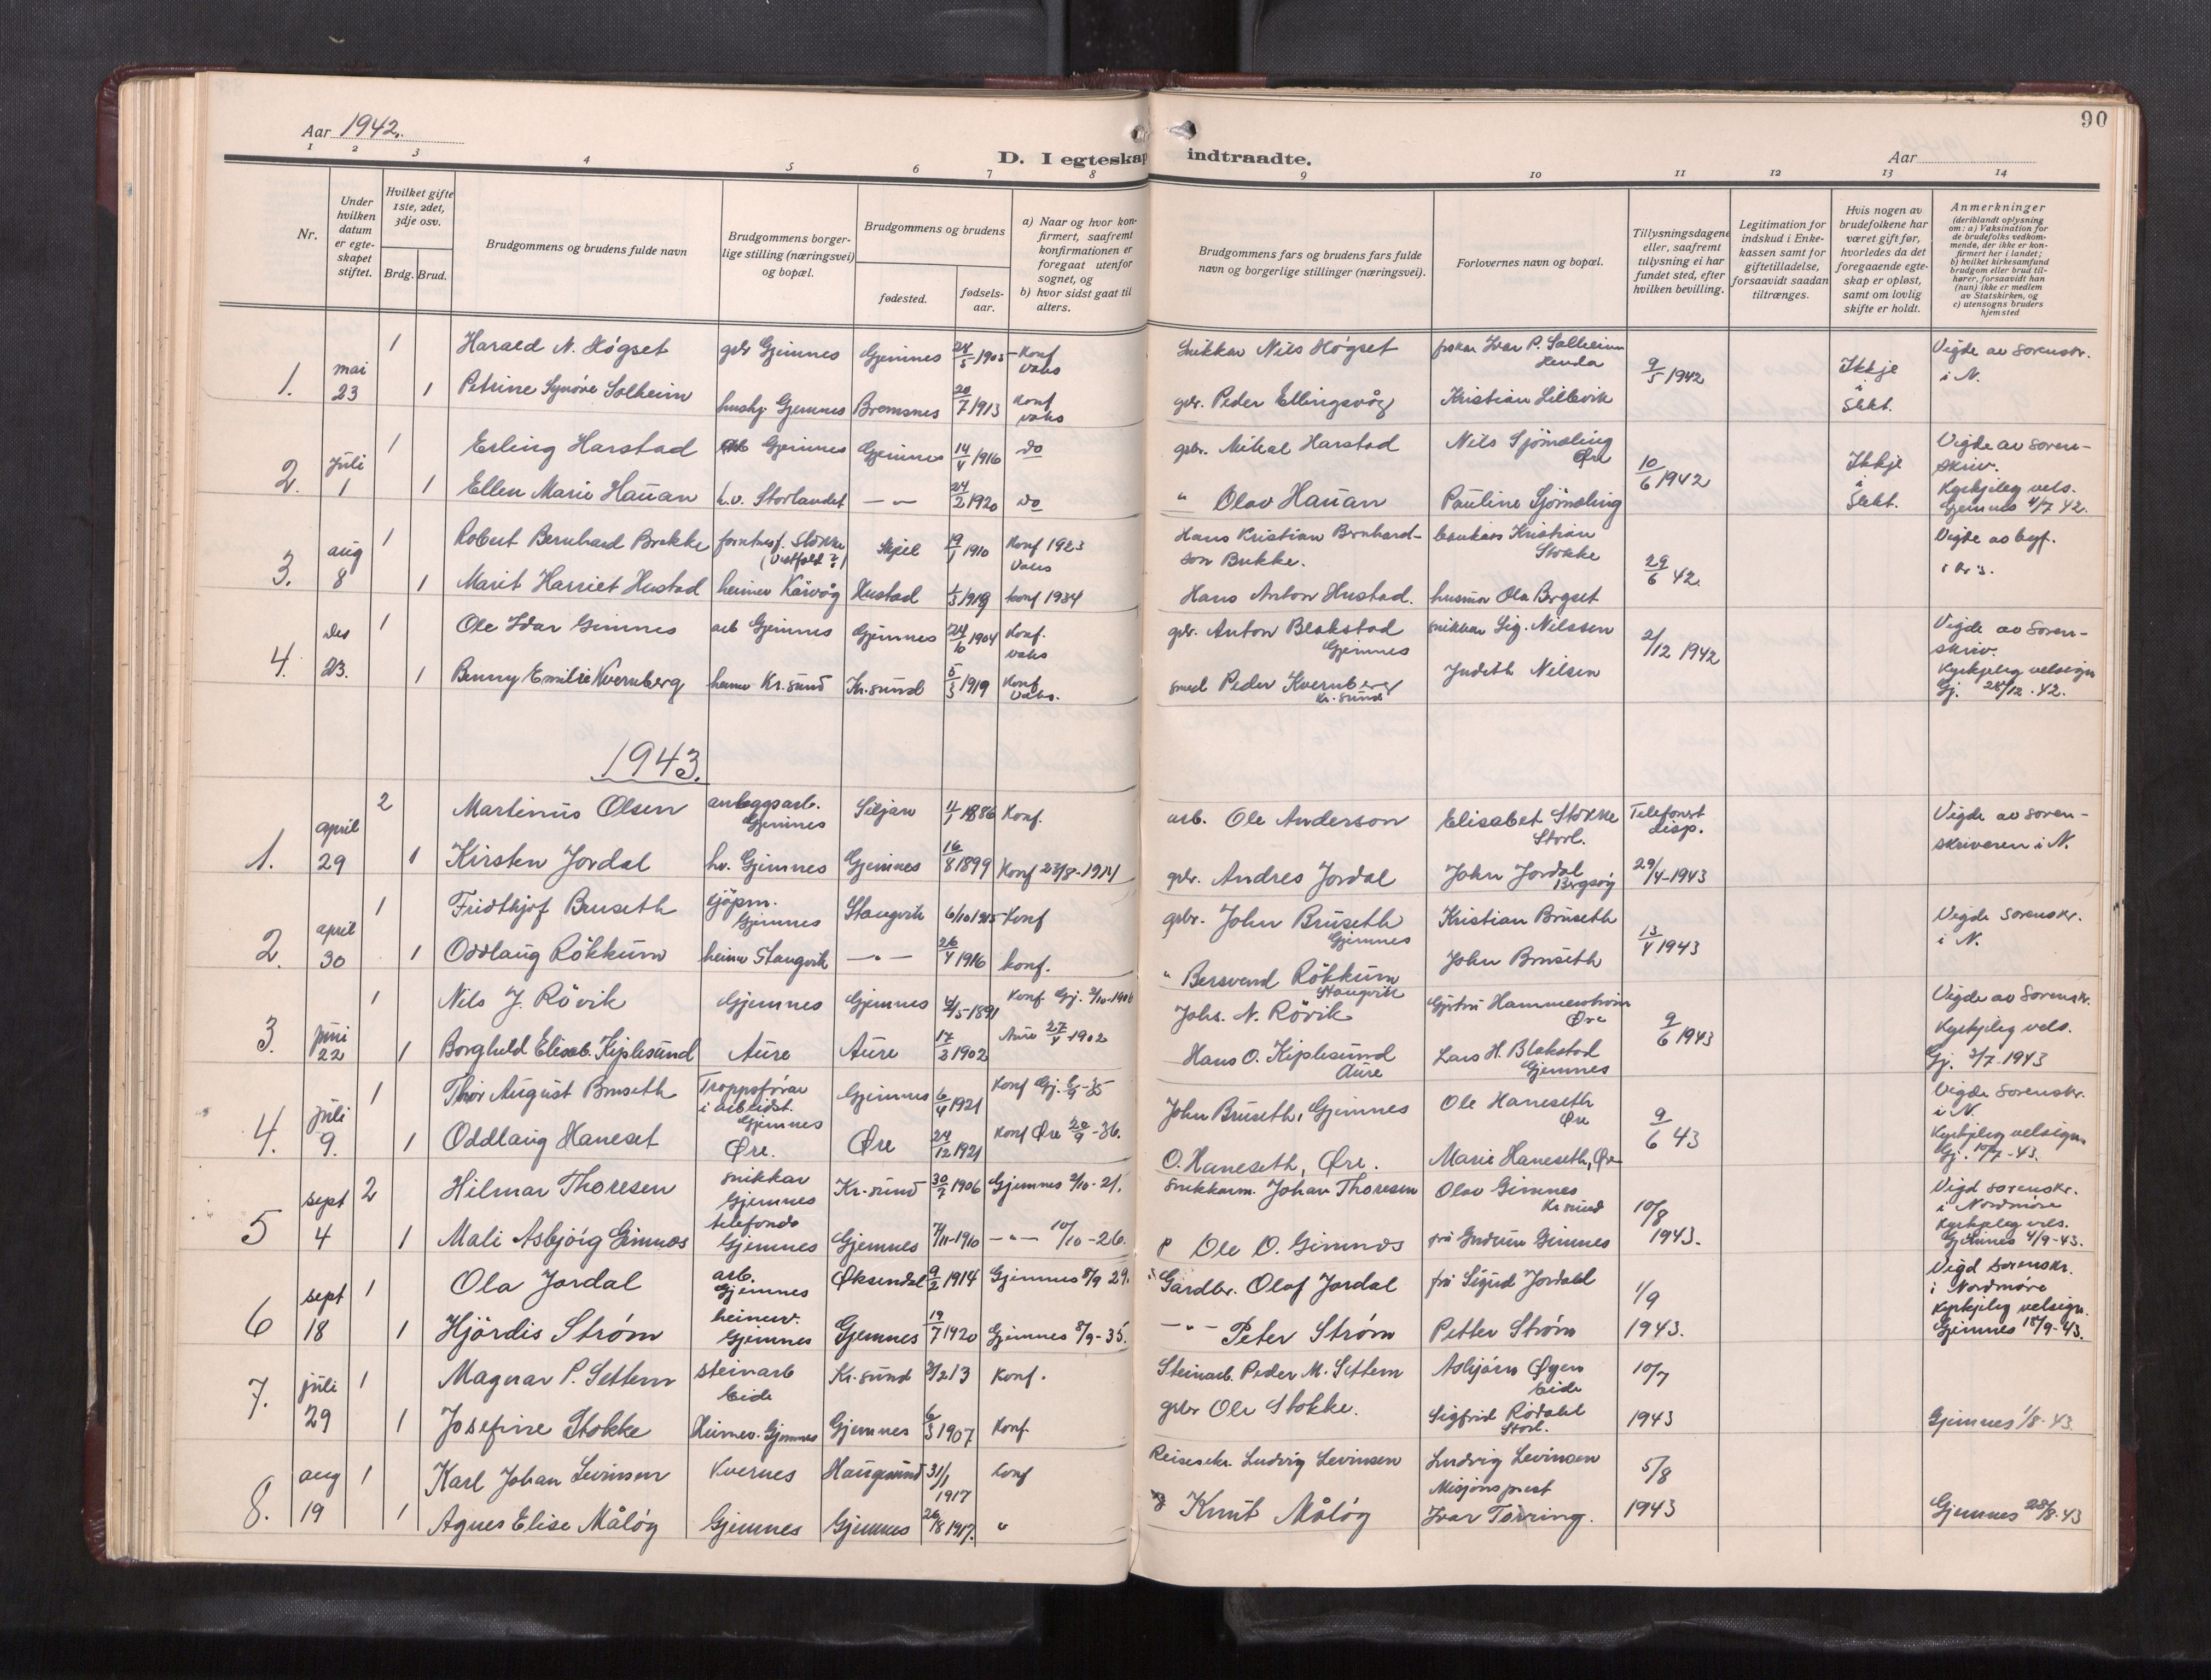 90
Aar 1942.
D. I egteskap indtraadte.
Aar
1 2 3 4 5 6 7 8 9 10 11 12 13 14
Nr.
Under hvilken datum er egte-skapet stiftet.
Hvilket gifte 1ste, 2det, 3dje osv.
Brdg. Brud.
Brudgommens og brudens fulde navn
Brudgommens borger-lige stilling (næringsvei) og bopæl.
Brudgommens og brudens
fødested.
fødsels-aar.
a) Naar og hvor kon-firmert, saafremt konfirmationen er foregaat utenfor sognet, og
b) hvor sidst gaat til alters.
Brudgommens fars og brudens fars fulde navn og borgerlige stillinger (næringsvei).
Forlovernes navn og bopæl.
Tillysningsdagene eller, saafremt tillysning ei har fundet sted, efter hvilken bevilling.
Legitimation for indskud i Enke-kassen samt for giftetilladelse, forsaavidt saadan tiltrænges.
Hvis nogen av brudefolkene har været gift før, hvorledes da det foregaaende egte-skap er opløst, samt om lovlig skifte er holdt.
Anmerkninger
(deriblandt oplysning om: a) Vaksination for de brudefolks vedkom-mende, der ikke er kon-firmert her i landet; b) hvilket kirkesamfund brudgom eller brud til-hører, forsaavidt han (hun) ikke er medlem av Statskirken, og c) utensogns bruders hjemsted
1. mai 23 1 Harald N. Høgset gbr Gjemnes Gjemnes 1905 Konf vaks Snikkar Nils Høgset Ivar P. Solheim 9/5 1942 Ikkje i Slekt. Vigde av Sorenskr. i N.
1 Petrine Synøve Solheim hushj. Gjemnes Bremsnes 20/7 1913 Konf vaks gbr. Peder Ellingsvåg Kristian Lillevik
2. Juli 1 1 Erling Harstad arb Gjemnes Gjemnes 14/4 1916 do gbr. Mikal Harstad Nils Sjömæling Øre 10/6 1942 Ikkje i Slekt. Vigde av Soren-skriv.
1 Ellen Marie Hauan h.v. Storlandet — " — 24/2 1920 do " Olav Hauan Pauline Sjömæling Kyrkjeleg vels. Gjemnes 4/7 42.
3. aug 8 1 Robert Bernhard Brekke Stokke (Vestfold?) 19/1 1910 Konf 1923 Vaks Hans Kristian Bernhard-son Brekke. Kristian Stokke 29/6 42. Vigde av byf.
1 Marit Harriet Hustad heimev Kårvåg Hustad 1/3 1919 konf 1934 Hans Anton Hustad. Ola Bergset
4. des 23. 1 Ole Ivar Gimnes arb Gjemnes Gjemnes 24/6 1904 Konf. vaks gbr. Anton Blakstad Gjemnes snikkar Sig. Nilssen 2/12 1942 Vigde av Soren-skriv.
1 Benny Emilie Kvernberg heimv Kr.sund Kr.sund 5/3 1919 Konf Vaks. smed Peder Kvernberg Kr.sund Judith Nilsen Kyrkjeleg velsign Gj. 28/12. 42.
1943.
1. april 29 2 Martinus Olsen anleggsarb. Gjemnes Siljan 1886 Konf. arb. Ole Anderson Elisabet Stokke Storl. Telefonert disp. Vigde av Soren-skriveren i N.
1 Kirsten Jordal hv. Gjemnes Gjemnes 16/8 1899 Konf 23/8-1914 gbr. Andres Jordal John Jordal Bergsöy 29/4-1943
2. april 30 1 Fridthjof Bruseth sjöpm. Gjemnes Stangvik 6/10 1915 Konf gbr. John Bruseth Gjemnes Kristian Bruseth 13/4 1943 Vigde Sorenskr. i N.
1 Oddlaug Rökkum heimv Stangvik — " — 26/4 1916 konf. " Bersvend Rökkum Stangvik John Bruseth
3. juni 22 1 Nils J. Rövik Gjemnes Gjemnes 1891 Konf Gj. Johs. N. Rövik Øre 9/6 1943 Vigde av Sorenskr.
1 Borghild Elisab. Kiplesund Aure Aure 17/2 1902 Aure Hans O. Kiplesund Aure Lars H. Blakstad Gjemnes Kyrkjeleg vels. Gj. 3/7-1943
4. juli 9. 1 Thor August Bruseth Troppsförar i arbeidst. Gjemnes Gjemnes 6/4 1921 Konf Gj. John Bruseth, Gjemnes Ole Haneseth Øre 9/6 43 Vigde Sorenskr. i N.
1 Oddlaug Haneset Øre. Øre 24/12 1921 Konf Øre 20/9-36. O. Haneseth, Øre. Marie Haneseth, Øre Kyrkjeleg velsign Gj. 10/7-43.
5 sept 4 2 Hilmar Thoresen snikkar Gjemnes Kr.sund 1906 Gjemnes Snikkarm. Johan Thoresen Olav Gimnes Kr sund 10/8 Vigd sorenskr. i Nordmöre
1 Mali Asbjörg Gimnes telefonda Gjemnes Gjemnes 1910 — " — 10/10-26. Ole O. Gimnes fru Gudrun Gimnes 1943. Kyrkjeleg vels. Gjemnes 4/9-43.
6 sept 18 1 Ola Jordal arb. Gjemnes Øksendal 9/2 1914 Gjemnes 8/9 29. Gardbr. Olaf Jordal Sigrid Jordal 1/9 Vigd Sorenskr. i Nordmöre
1 Hjördis Strøm heimev. Gjemnes Gjemnes 19/7 1920 Gjemnes 8/9-35. — " — Peter Strøm Petter Strøm 1943. Kyrkjeleg velsign. Gjemnes 18/9-43.
7. juli 29 1 Magnar P. Settem steinarb Eide Kr.sund Konf. Steinarb. Peder M. Settem Asbjörn Øyen Eide 10/7
1 Josefine Stokke Heimev. Gjemnes Gjemnes 6/3 1907 Konf gbr Ole Stokke. Sigfrid Rödahl Storl. 1943 Gjemnes 1/8-43.
8. aug 19 1 Karl Johan Levinsen Kvernes Haugesund 31/1 1917 Konf Reisesekr. Ludvig Levinsen Ludvig Levinsen Misjonsprest 5/8
1 Agnes Elise Målöy Gjemnes Gjemnes 26/8 1917. " Knut Målöy Ivar Törring. 1943 Gjemnes 28/8-43